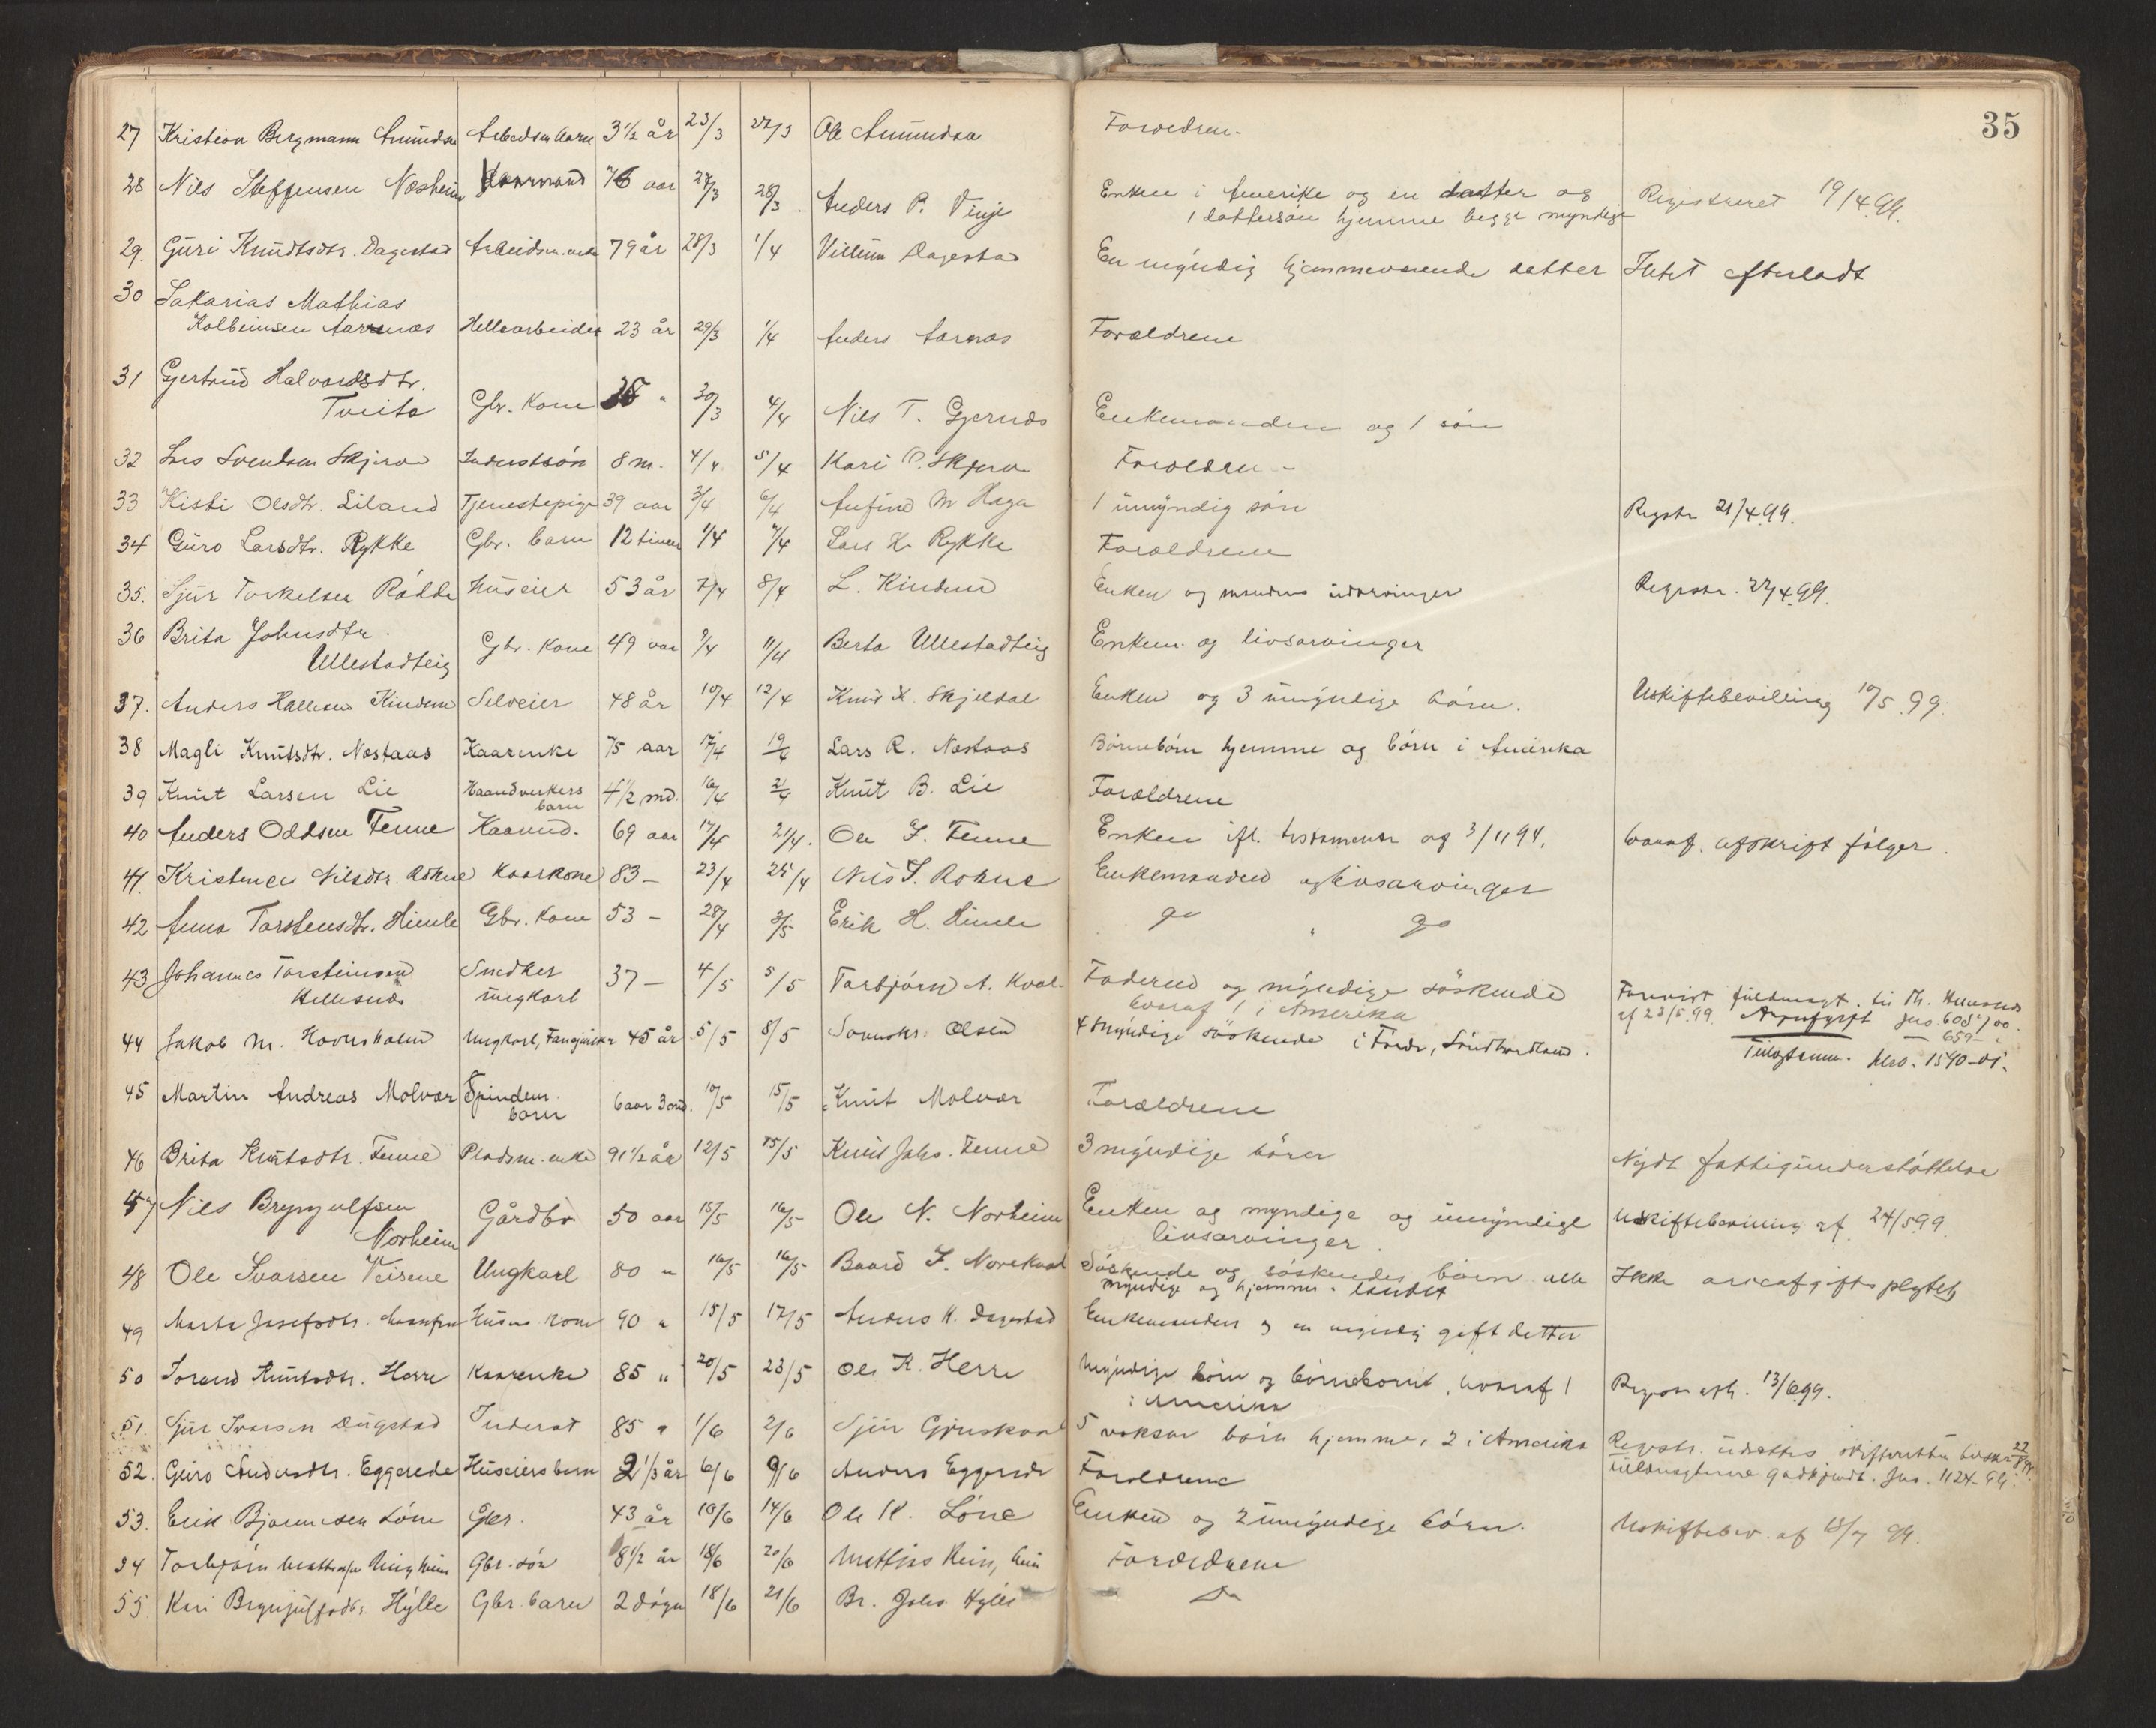 35
27 Kristian Bergmann Amundsen Arbeidsm barn 3 1/2 år 23/3 27/3 Ole Amundsen Forældren-
28 Nils Steffensen Næsheim Kaarmand 76 aar 24/3 28/3 Anders P. Vinje Enken i Amerika og en datter og Registreret 19/4 99.
1 dattersøn hjemme begge myndige
29. Guri Knudtsdtr. Dagestad Arbeidsm. enke 79 år 28/3 1/4 Villum Dagestad En myndig hjemmeværende datter Intet efterladt
30 Sakarias Mathias
Kolbeinsen Aarnæs Hellearbeider 23 år 29/3 1/4 Anders Aarnæs Forældrene
31 Gjertrud Halvardsdtr.
Tveita Gbr. Kone 38 " 30/3 4/4 Nils T. Gjernæs Enkemanden og 1 søn
32 Lars Svendsen Skjerve Inderstsøn 8 m. 4/4 5/4 Kari P. Skjerve Forældren -
33 Kisti Olsdtr. Liland Tjenestepige 39 aar 3/4 6/4 Anfind M Haga 1 umyndig søn Regstr 21/4.99.
34 Guro Larsdtr. Rykke Gbr. barn 12 timer 1/4 7/4 Lars K. Rykke Forældrene
35. Sjur Torkelsen Rådde Huseier 53 år 7/4 8/4 L. Kindem Enken og mandens udarvinger Regestr. 22/4.99.
36 Brita Johnsdtr.
Ullestadteig Gbr. Kone 49 aar 9/4 11/4 Berta Ullestadteig Enkem. og livsarvinger
37. Anders Hallesen Kindem Selveier 48 år 10/4 12/4 Knud K. Skjeldal Enken og 3 umyndige børn. Uskiftebevilling 10/5 99.
38 Magli Knutsdtr. Næstaas Kaarenke 75 aar 12/4 19/4 Lars R. Næstaas Børnebørn hjemme og børn i Amerika
39 Knut Larsen Lie Haandverkers barn 4 1/2 md. 16/4 21/4 Knut B. Lie Forældrene
40 Anders Oddsen Tenne Kaarmd. 69 aar 17/4 21/4. Ole J. Tenne Enken ifl. testamente og 3/11 94, hvoraf afskrift følger.
41. Kristence Nilsdtr. Rokne Kaarkone 83 - 23/4 25/4 Nils J. Rokne Enkemanden og livsarvinger
42 Anna Torstensdtr. Himle Gbr. Kone 53 - 28/4 3/5 Erik H. Himle do " do
43 Johannes Torsteinsen
Hellesnæs Snedker ungkarl 37 - 4/5 5/5 Torbjørn A. Kval- Faderen og myndige søskende
hvoraf 1 i Amerika
Forevist fuldmagt. til Th.
af 23/5.99. Jno. 605/00.
659 -
44 Jakob M. Hovnsholm Ungkarl, 45 år 5/5 8/5 Olsen 4 myndige søskende i Førde, Søndhordland. Jno. 1540-01.
45 Martin Andreas Molvær Spindem. barn 6 aar 3 md. 10/5 15/5 Knut Molvær Forældrene
46 Brita Knutsdtr. Tenne Pladsm. enke 91 1/2 år 12/5 15/5 Knut Johs. Tenne 3 myndige børn Nydt fattigunderstøttelse
47 Nils Brynjulfsen
Norheim Gårdbr 50 aar 15/5 16/5 Ole N. Norheim Enken og myndige og umyndige Uskiftebevilling af 24/5 99
livsarvinger.
48 Ole Ivarsen Veisene Ungkarl 80 " 16/5 16/5 Baard J. Norekval Søskende og søskendes børn alle Ikke arveafgiftspligtig
myndige og hjemme i landet
49 Marta Josefsdtr. Husm. kone 90 " 15/5 17/5 Anders K. Dagestad Enkemanden og en myndig gift datter
50 Torand Knutsdtr. Herre Kaarenke 85 " 20/5 23/5 Ole K. Herre Myndige børn og børnebørn, hvoraf 1 13/6 99.
i Amerika
51. Sjur Ivarsen Dugstad Inderst 85 " 1/6 2/6 Sjur Gjerskval 5 voksne børn hjemme, 2 i Amerika Regstr. udsættes
52. Guro Andersdtr. Eggerede Huseiersbarn 2 1/3 år 6/6 9/6 Anders Eggerede Forældrene godkjendt. Jno. 1124-99.
53. Erik Bjørnesen Løne Gbr. 43 år 10/6 14/6 Ole K. Løne Enken og 2 umyndige børn. Uskiftebev. af 18/7 99.
54 Torbjørn Gbr. søn 8 1/2 år 18/6 20/6 Mathias Forældrene
55 Kari Brynjulfsdtr. Hylle Gbr. barn 2 døgn 18/6 21/6 Br. Johs Hylle Do